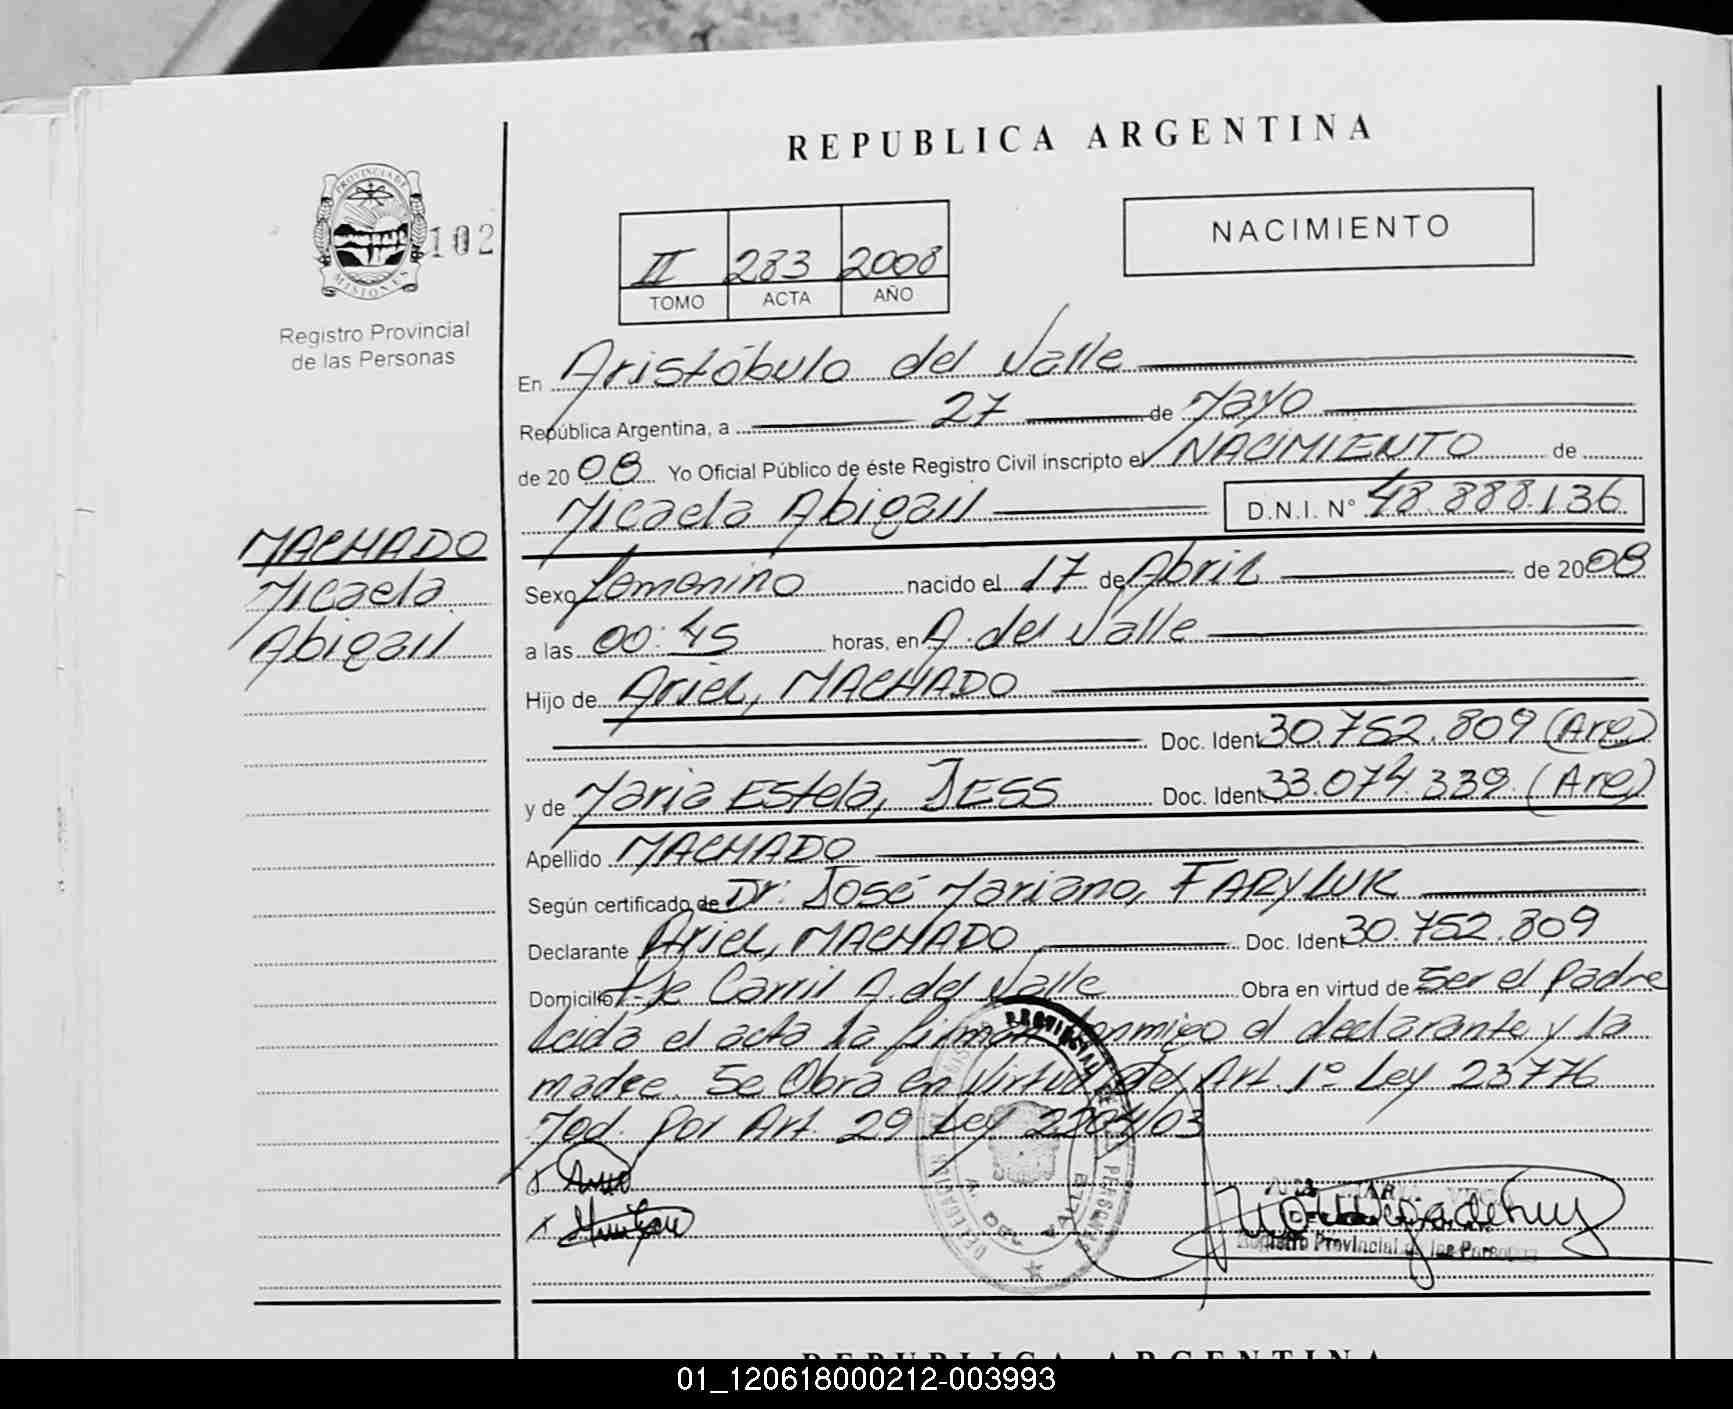 REPUBLICA ARGENTINA
PROVINCIA DE
MISIONES
102
Registro Provincial
de las Personas
II 283 2008
TOMO ACTA AÑO
NACIMIENTO
En Aristóbulo del Valle
República Argentina, a 27 de Mayo
de 2008 Yo Oficial Público de éste Registro Civil inscripto el NACIMIENTO de
Micaela Abigail D.N.I. N° 48.888.136
MACHADO
Micaela
Abigail
Sexo Femenino nacido el 17 de Abril de 2008
a las 00:45 horas, en A. del Valle
Hijo de Ariel, MACHADO
Doc. Ident 30.752.809 (Arg)
y de Maria Estela, JESS Doc. Ident 33.074.339. (Arg)
Apellido MACHADO
Según certificado de Dr: José Mariano, FARYLUK
Declarante Ariel, MACHADO Doc. Ident 30.752.809
Domicilio Carril A. del Valle Obra en virtud de ser el padre
Leida el acta la firman conmigo el declarante y la
madre. Se Obra en Virtud del Art. 1° Ley 23776
Mod. por Art. 29 Ley
A. DEL VALLE
Registro Provincial de las Personas
REPUBLICA ARGENTINA
01_120618000212-003993